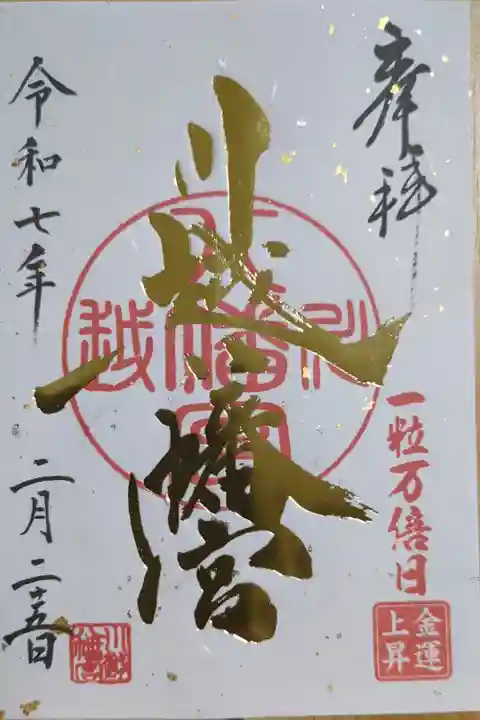 奉拝
一粒万倍日
金運
上昇
川越八幡宮
川越八幡宮
令和七年
二月二十五日